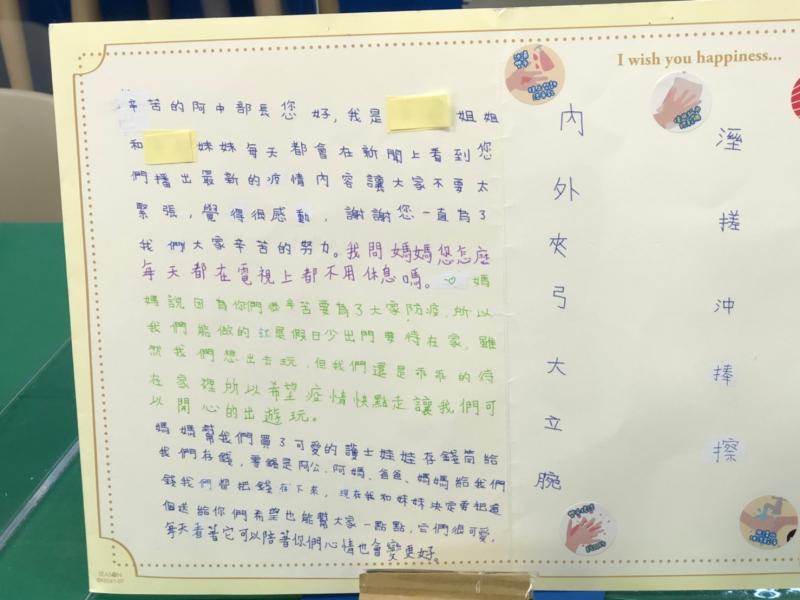 辛苦的阿中部長您好,我是 姐姐
和 妹妹每天都會在新聞上看到您
們播出最新的疫情內容讓大家不要太
緊張,覺得很感動,謝謝您一直為了
我們大家辛苦的努力。我問媽媽您怎麼
每天都在電視上都不用休息嗎。媽
媽說因為你們辛苦要為了大家防疫,所以
我們能做的就是假日少出門要待在家,雖
然我們想出去玩,但我們還是乖乖的待
在家裡所以希望疫情快點走讓我們可
以開心的出遊玩。
媽媽幫我們買了可愛的護士娃娃存錢筒給
我們存錢,零錢是阿公、阿媽、爸爸、媽媽給我們
錢我們都把錢存下來,現在我和妹妹決定要把這
個送給你們希望也能幫大家一點點,它們很可愛,
每天看著它可以陪著你們心情也會變更好。
SEASON
I wish you happiness...
內
外
夾
弓
大
立
腕
溼
搓
沖
捧
擦